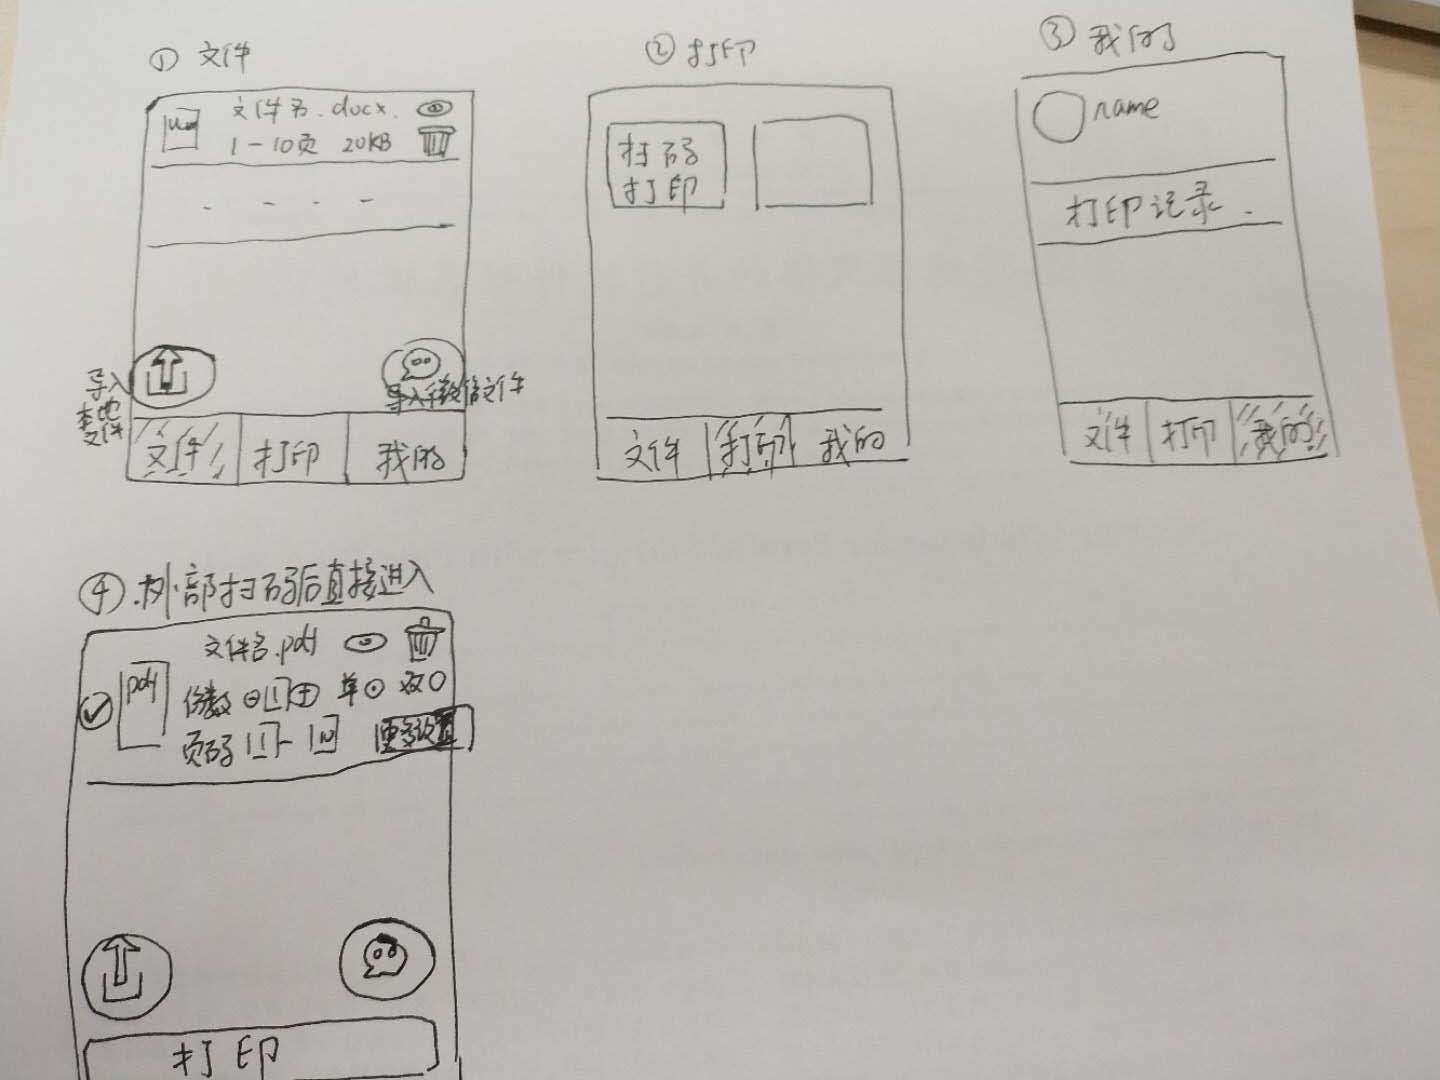 ① 文件
文件名.docx.
1-10页 20KB
导入
本地
文件
导入微信文件
文件 打印 我的
② 打印
扫码
打印
文件 打印 我的
③ 我的
name
打印记录
文件 打印 我的
④ 外部扫码后直接进入
文件名.pdf
pdf
份数 1 单 双
页码 1 - 10 更多设置
打印